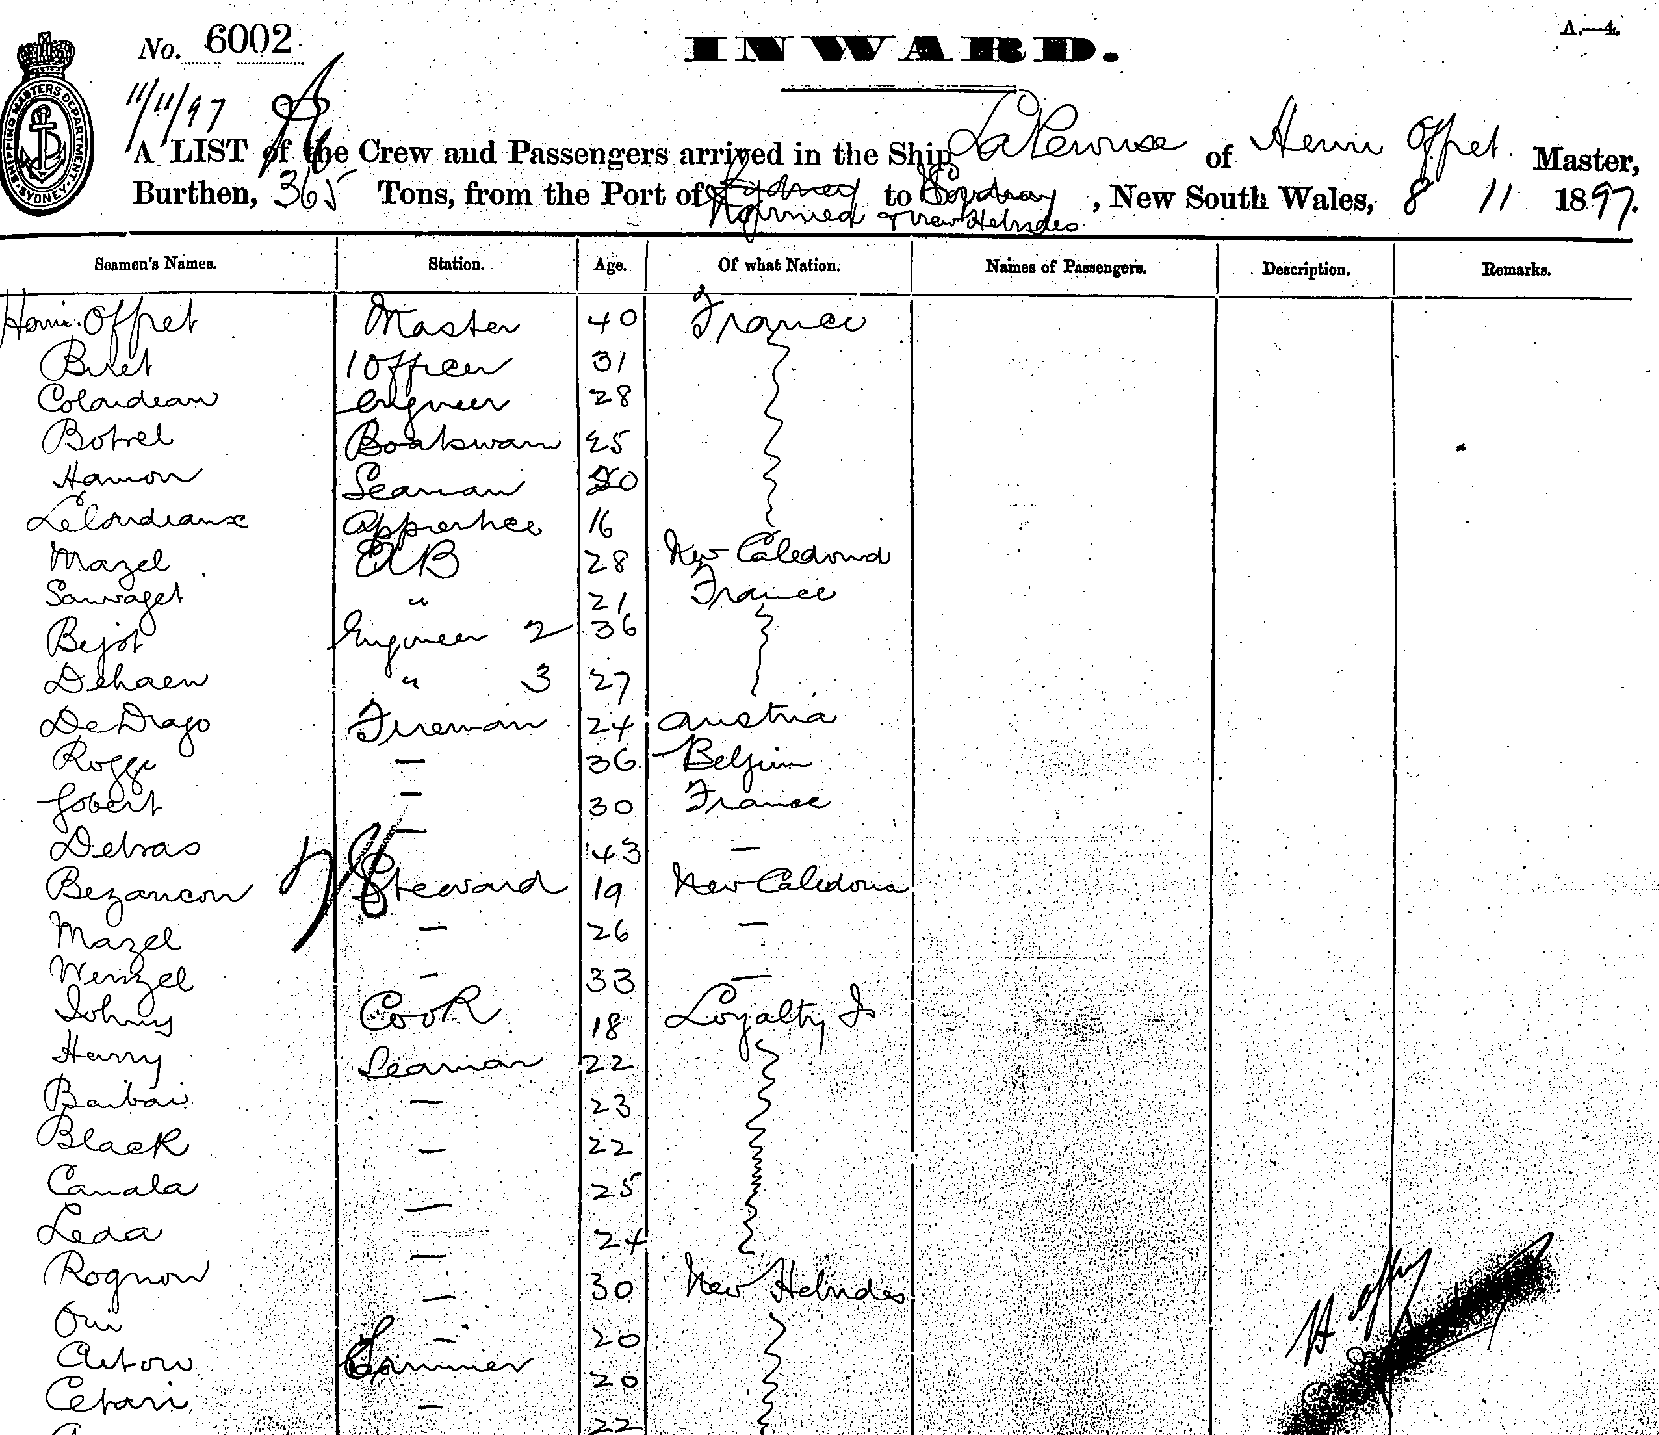 No. 6002
INWARD.
A.—4.
11/11/97
SHIPPING MASTERS DEPARTMENT
A LIST of the Crew and Passengers arrived in the Ship La Perouse of Henri Offret Master,
Burthen, 365 Tons, from the Port of Sydney to , New South Wales, 8 11 1897.
Noumea & New Hebrides
Seamen's Names. Station. Age. Of what Nation. Names of Passengers. Description. Remarks.
Henri Offret Master 40 France
Biret 1 Officer 31
Colondean Engineer 28
Botrel Boatswain 25
Hamon Seaman 20
Apprentice 16
Mazel AB 28 New Caledonia
Sauvaget " 21 France
Bejot Engineer 2 36
Dehaen " 3 27
De Drago Fireman 24 Austria
Rogge — 36 Belgium
Gobert — 30 France
Delras — 43 —
Bezancon Steward 19 New Caledonia
Mazel — 26 —
Wenzel — 33 —
Johnny Cook 18 Loyalty Is
Harry Seaman 22
Baibai — 23
Black — 22
Canala — 25
Leda — 24
Rognon — 30 New Hebrides
Oui — 20
Artow 20
Cetari — 22
H Offret